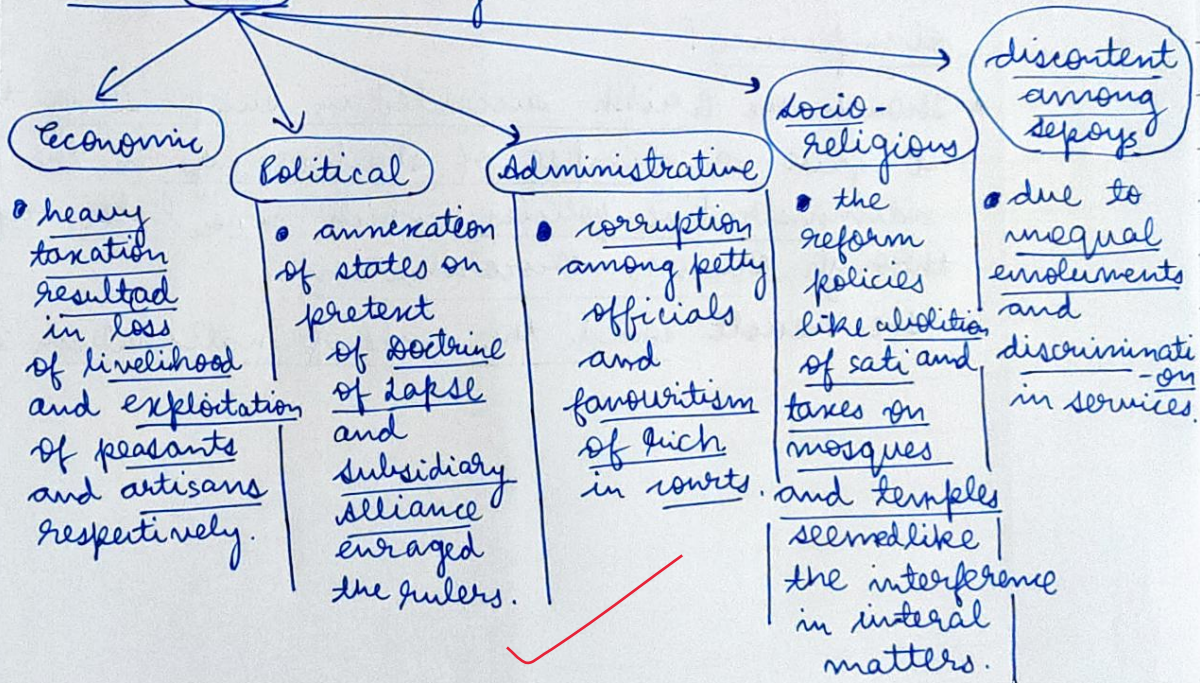 Economic
• heavy
taxation
resultad
in loss
of livelihood
and exploitation
of peasants
and artisans
respectively.
Political
• annexation
of states on
pretext
of Doctrine
of Lapse
and
subsidiary
alliance
enraged
the rulers.
Administrative
• corruption
among petty
officials
and
favouritism
of rich
in courts.
Socio-
religious
• the
reform
policies
like abolition
of sati and
taxes on
mosques
and temples
seemed like
the interference
in interal
matters.
discontent
among
sepoys
• due to
unequal
emoluments
and
discriminati
-on
in services.